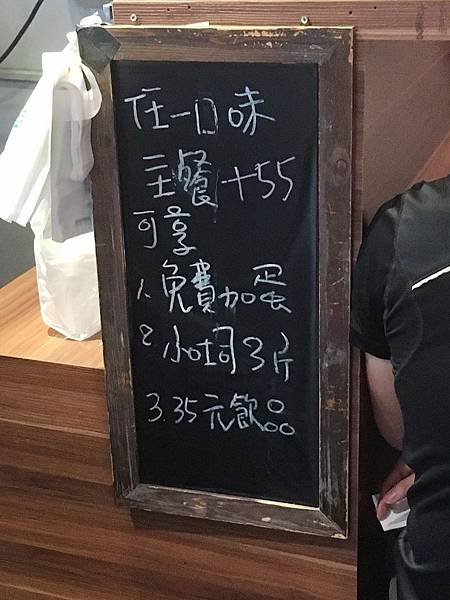 任一口味
主餐+55
可享
1.免費加蛋
2 小吐司3片
3.35元飲品